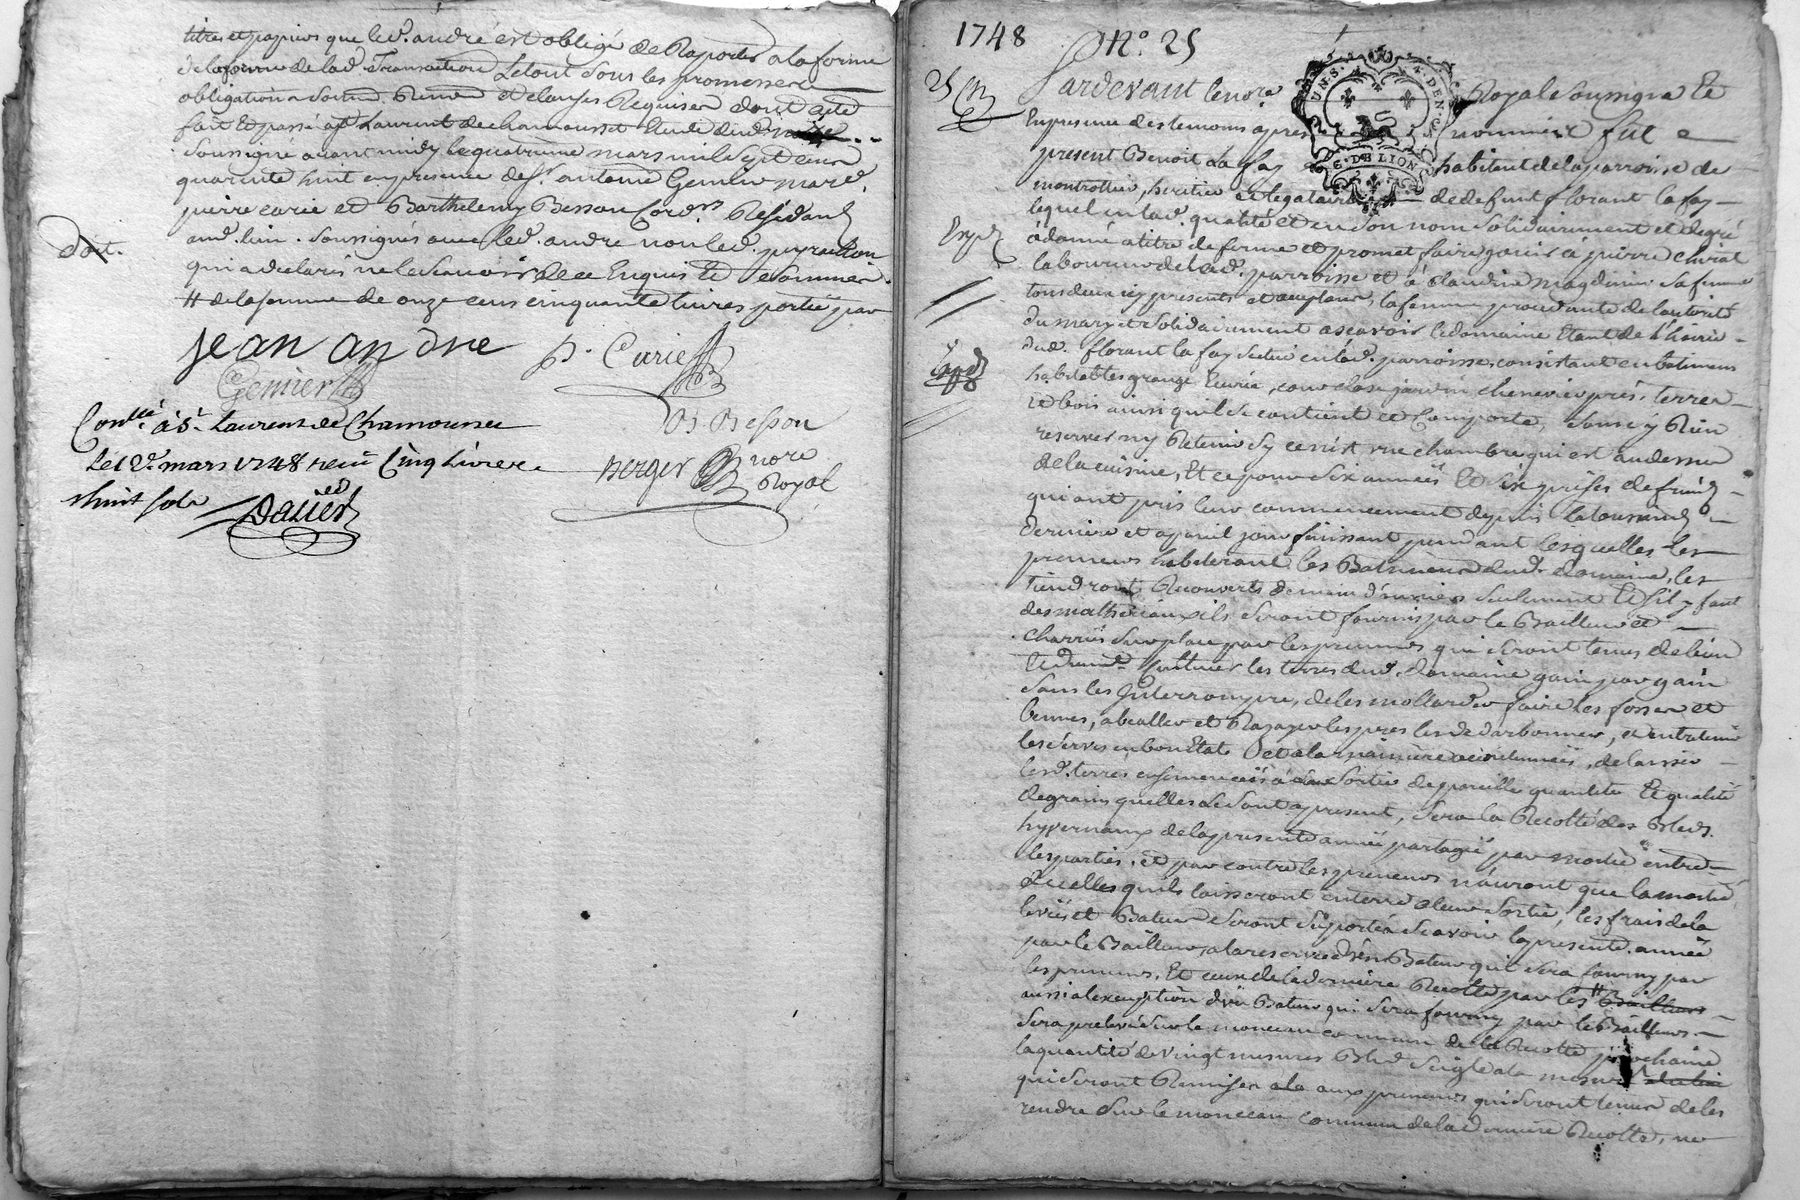 titres et papiers que led. andré est obligé de Raporter a la forme
de lad. Transaction Le tout sous les promesses
obligations soum. Renon. et clauses Requises dont acte
fait Et passé a St Laurent de chamousset Etude dud. notre
soussigné avant midy le quatrieme mars mil sept cens
quarente huit en presence de Sr. antoine Gemier mard.
pierre carie et Barthelemy Besson Cordrs. Residants
aud. lieu. soussignés avec led. andre non led.
qui a declaré ne le scavoir de ce Enquis Et sommé
# de la somme de onze cens cinquante livres portée par
Doit.
jean andre P. Carie
Gemier
B. Besson
Conllé à St. Laurens de Chamousset
Le 12e. mars 1748 receu Cinq Livres
Berger nore Royal
Huit sols
Dalier
1748 No. 25
25
Pardevant le nore. Royal soussigné Et
En presence des temoins apres nommés fut
GEN. DE LION
present Benoit La fay habitant de la parroisse de
montrottier, heritier et legataire de defunt florant la fay
lequel en lad. qualité et en son nom solidairement et de gré
a donné a titre de ferme et promet faire jouir à pierre chirat
Exp.
laboureur de lad. parroisse et à claudine magdinier sa femme
tous deux icy presents et acceptans, la femme procedante de l'autorité
du mary et solidairement a scavoir le domaine Etant de l'hoirie
dud. florant la fay scitué en lad. parroisse, consistant en batimens
habitables grange Ecurie, cour close jardin cheneviers prés, terres
et bois ainsi qu'il se contient et Comporte, sans y Rien
reserver ny Retenir sy ce n'est une chambre qui est au dessus
de la cuisine, Et ce pour six années Et six prises de fruits
qui ont pris leur commencement depuis la toussaints
derniere et a pareil jour finissant pendant lesquelles les
preneurs habiteront les Batimens dud. domaine, les
tiendront Recouverts de main d'ouvriers seulement Et s'il faut
des matheriaux ils seront fournis par le Bailleur et
charriés sur place par les preneurs qui seront tenus de bien
Et deument cultiver les terres dud. domaine gain par gain
sans les Interrompre, de les mollarder faire les fosses et
bennes, abealler et Razayer les prés les dedarbonner, et entretenir
les serves en bon Etat et a la maniere accoutumée, de laisser
lesd. terres ensemencées a leur sortie de pareille quantité Et qualité
de grains quelles Le sont a present, sera la Recolte des Bleds
hyvernaux de la presente année partagée par moitié entre
les parties, et par contre les preneurs n'auront que la moitié
de celles quils laisseront en terre a leur sortie, les frais de la
levée et Bateure seront suportés scavoir la presente année
par le Bailleur a la reserve d'un Bateur qui sera fourny par
les preneurs, Et ceux de la derniere Recolte par les # Bailleurs
aussi a l'exception d'un Bateur qui sera fourny par le Bailleur
sera prelevé sur le monceau commun de la Recolte prochaine
la quantité de vingt mesures Bled seigle a la mesure
qui seront Remises aux preneurs qui seront tenus de les
rendre sur le monceau commun de la derniere Recolte, ne